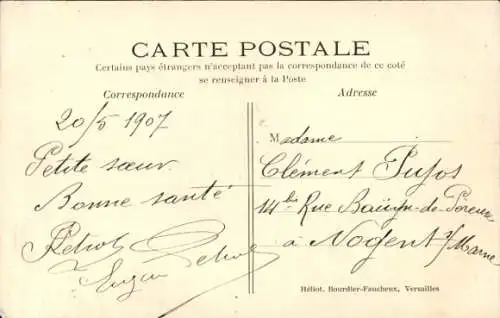 CARTE POSTALE
Certains pays étrangers n'acceptant pas la correspondance de ce coté
se renseigner à la Poste
Correspondance
Adresse
20/5 1907
Petite sœur
Bonne santé
Madame
Clément
14 bis Rue
à Nogent s/Marne
Héliot. Bourdier-Faucheux, Versailles